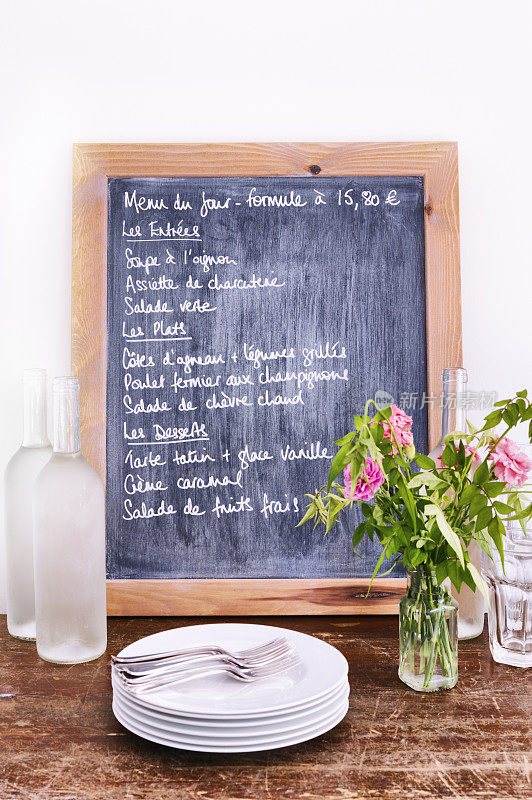 Menu du jour - formule à 15,80 €
Les Entrées
Soupe à l'oignon
Assiette de charcuterie
Salade verte
Les Plats
Côtes d'agneau + légumes grillés
Poulet fermier aux champignons
Salade de chèvre chaud
Les Desserts
Tarte tatin + glace vanille
Crème caramel
Salade de fruits frais
新图网